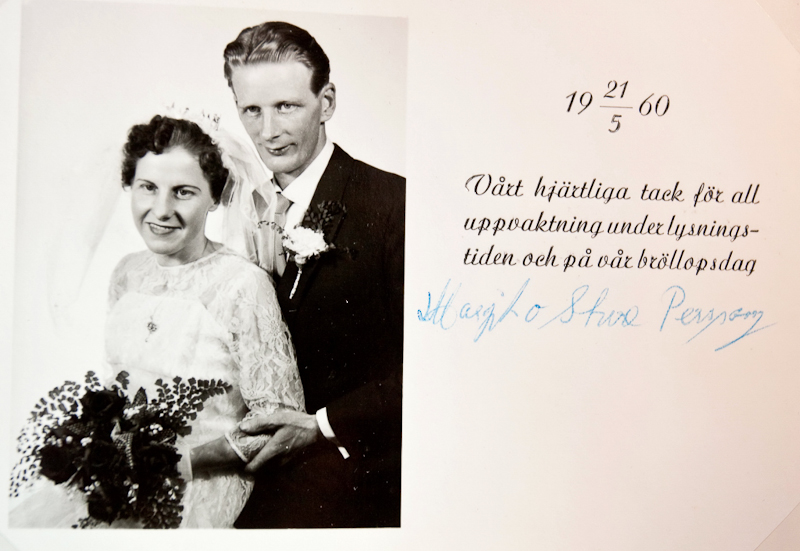 19 21/5 60
Vårt hjärtliga tack för all
uppvaktning under lysnings-
tiden och på vår bröllopsdag
o Sture Persson